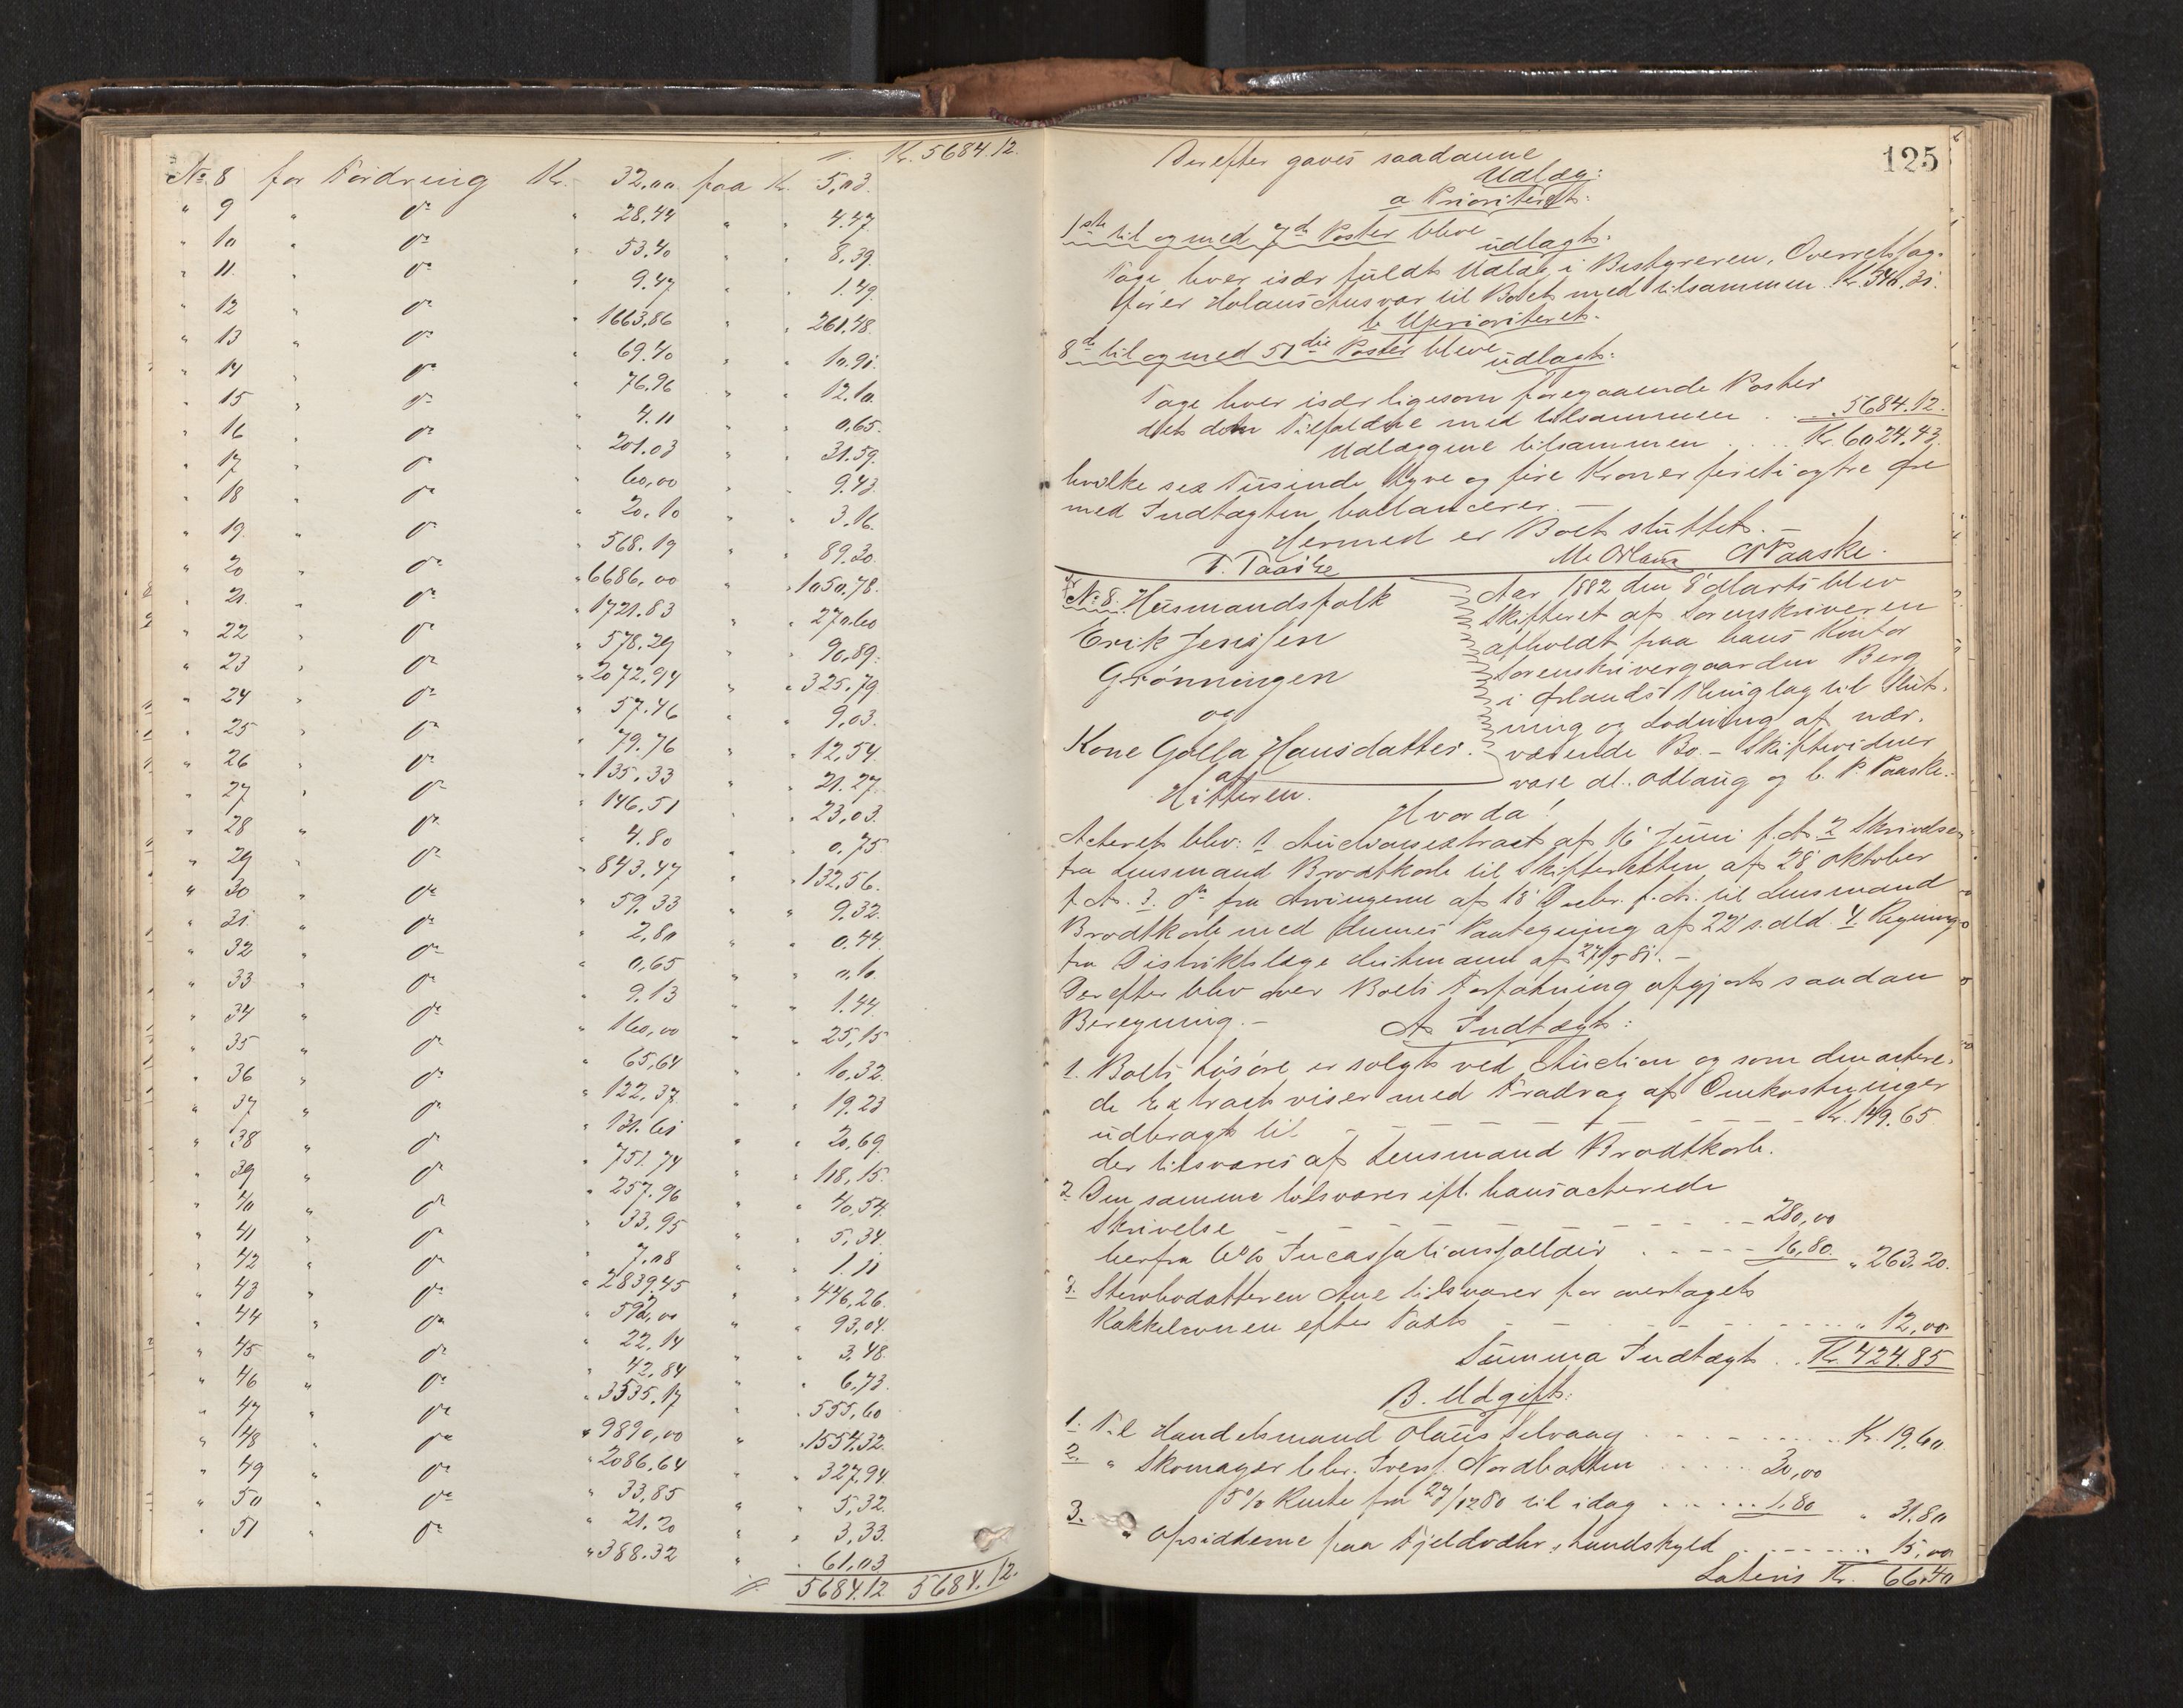 //. Kr. 5684.12.
No 8 for Fordring Kr. 32,00 paa Kr. 5,03.
" 9 " do " 28.44 " " 4.47.
" 10 " do " 53.40 " " 8,39.
" 11. " do " 9.47 " " 1.49.
" 12 " do " 1663,86 " " 261.48.
" 13 " do " 69.40 " " 10.91.
" 14 " do " 76.96 " " 12.10.
" 15 " do " 4.11 " " 0,65.
" 16 " do " 201.03 " " 31.59.
" 17 " do " 60,00 " " 9.43.
" 18 " do " 20.10 " " 3.16.
" 19. " do " 568.19 " " 89.30.
" 20 " do " 6686,00 " " 1050.78.
" 21. " do " 1721.83 " " 270.60
" 22 " do " 578.29 " " 90,89.
" 23 " do " 2072,94 " " 325.79
" 24 " do " 57.46 " " 9,03.
" 25 " do " 79.76 " " 12,54.
" 26 " do " 135.33 " " 21.27.
" 27 " do " 146,51 " " 23,03.
" 28 " do " 4.80 " " 0.75
" 29 " do " 843.47 " " 132,56.
" 30 " do " 59,33 " " 9,32.
" 31. " do " 2,80 " " 0.44.
" 32 " do " 0,65 " " 0.10.
" 33 " do " 9.13 " " 1.44.
" 34 " do " 160,00 " " 25,15
" 35 " do " 65,64 " " 10,32.
" 36 " do " 122,37 " " 19.23
" 37 " do " 131.61 " " 20,69.
" 38 " do " 751.74 " " 118,15.
" 39 " do " 257.96 " " 40,54.
" 40 " do " 33.95 " " 5,34.
" 41 " do " 7,08 " " 1.11
" 42 " do " 2839.45 " " 446,26.
" 43 " do " 592,00 " " 93,04.
" 44 " do " 22,14 " " 3,48.
" 45 " do " 42,84 " " 6,73.
" 46 " do " 3535.17 " " 555,60
" 47 " do " 9890,00 " " 1554,32.
" 48 " do " 2086,64 " " 327,94.
" 49 " do " 33,85 " " 5,32.
" 50 " do " 21.20 " " 3,33.
" 51 " do " 388.32 " " 61,03
//. 5684.12 5684.12.
125
Derefter gaves saadanne
Udlæg:
a Prioriteret:
1ste til og med 7de Poster bleve
udlagt:
Tage hver især fuldt Udlæg i Bestyreren, Overretssag-
fører Holans Ansvar til Boet med tilsammen Kr. 340.31.
b Uprioriteret.
8de til og med 51die Poster bleve
udlagt:
Tage hver især ligesom foregaaende Poster
det dem Tilfaldne med tilsammen . . " 5684.12.
Udlæggene tilsammen . . . Kr. 6024.43.
hvilke sex Tusinde tyve og fire Kroner firti og tre Øre
med Indtægten ballancerer. –
Hermed er Boet sluttet. –
M. Odlaug C P Paaske.
No 8. Husmandsfolk
Erik Jenssen
Grønningen
og
Kone Golla Hansdatter
af
Hitteren.
Aar 1882 den 8' Marts blev
Skifteret af Sorenskriveren
afholdt paa hans Kontor
Sorenskrivergaarden Berg
i Ørlands Thinglag til Slut-
ning og Lodning af nær-
værende Bo. – Skiftevidner
vare M. Odlaug og C. P. Paaske.
Hvorda!
Acteret blev: 1 Auctionsextract af 16' Juni f. A. 2 Skrivelse
fra Lensmand Brodtkorb til Skifteretten af 28' Oktober
f. A. 3. do fra Arvingerne af 18' Decbr. f. A. til Lensmand
Brodtkorb med dennes Paategning af 22' s. Md. 4. Regning
fra Distriktslæge af 27/5 81. –
Derefter blev over Boets Forfatning opgjort saadan
Beregning. – A Indtægt:
1. Boets Løsøre er solgt ved Auction og som den actere-
de Extract viser med Fradrag af Omkostninger
udbragt til – – – – – – – – Kr. 149.65.
der tilsvares af Lensmand Brodtkorb.
2 Den samme tilsvarer ifl. hans acterede
Skrivelse – – – – – – – 280,00
herfra 6% Incassationssallair . . . – 16,80. " 263.20.
3. Sterbodatteren Ane tilsvarer for overtaget
Kakkelovnen efter Taxt – – – – – – – . . . " 12,00
Summa Indtægt . . Kr. 424.85
B. Udgift:
1. Til Handelsmand Olaus Selvaag . . . . . . . . Kr. 19.60
2. " Skomager Chr. Iverss. Nordbotten . . . . . 30,00
5% Rente fra 27/12 80 til idag . . . . . . 1.80 " 31.80
3. " Opsidderne paa Fjeldvær, Landskyld . . . . . . " 15,00
Lateris Kr. 66.40